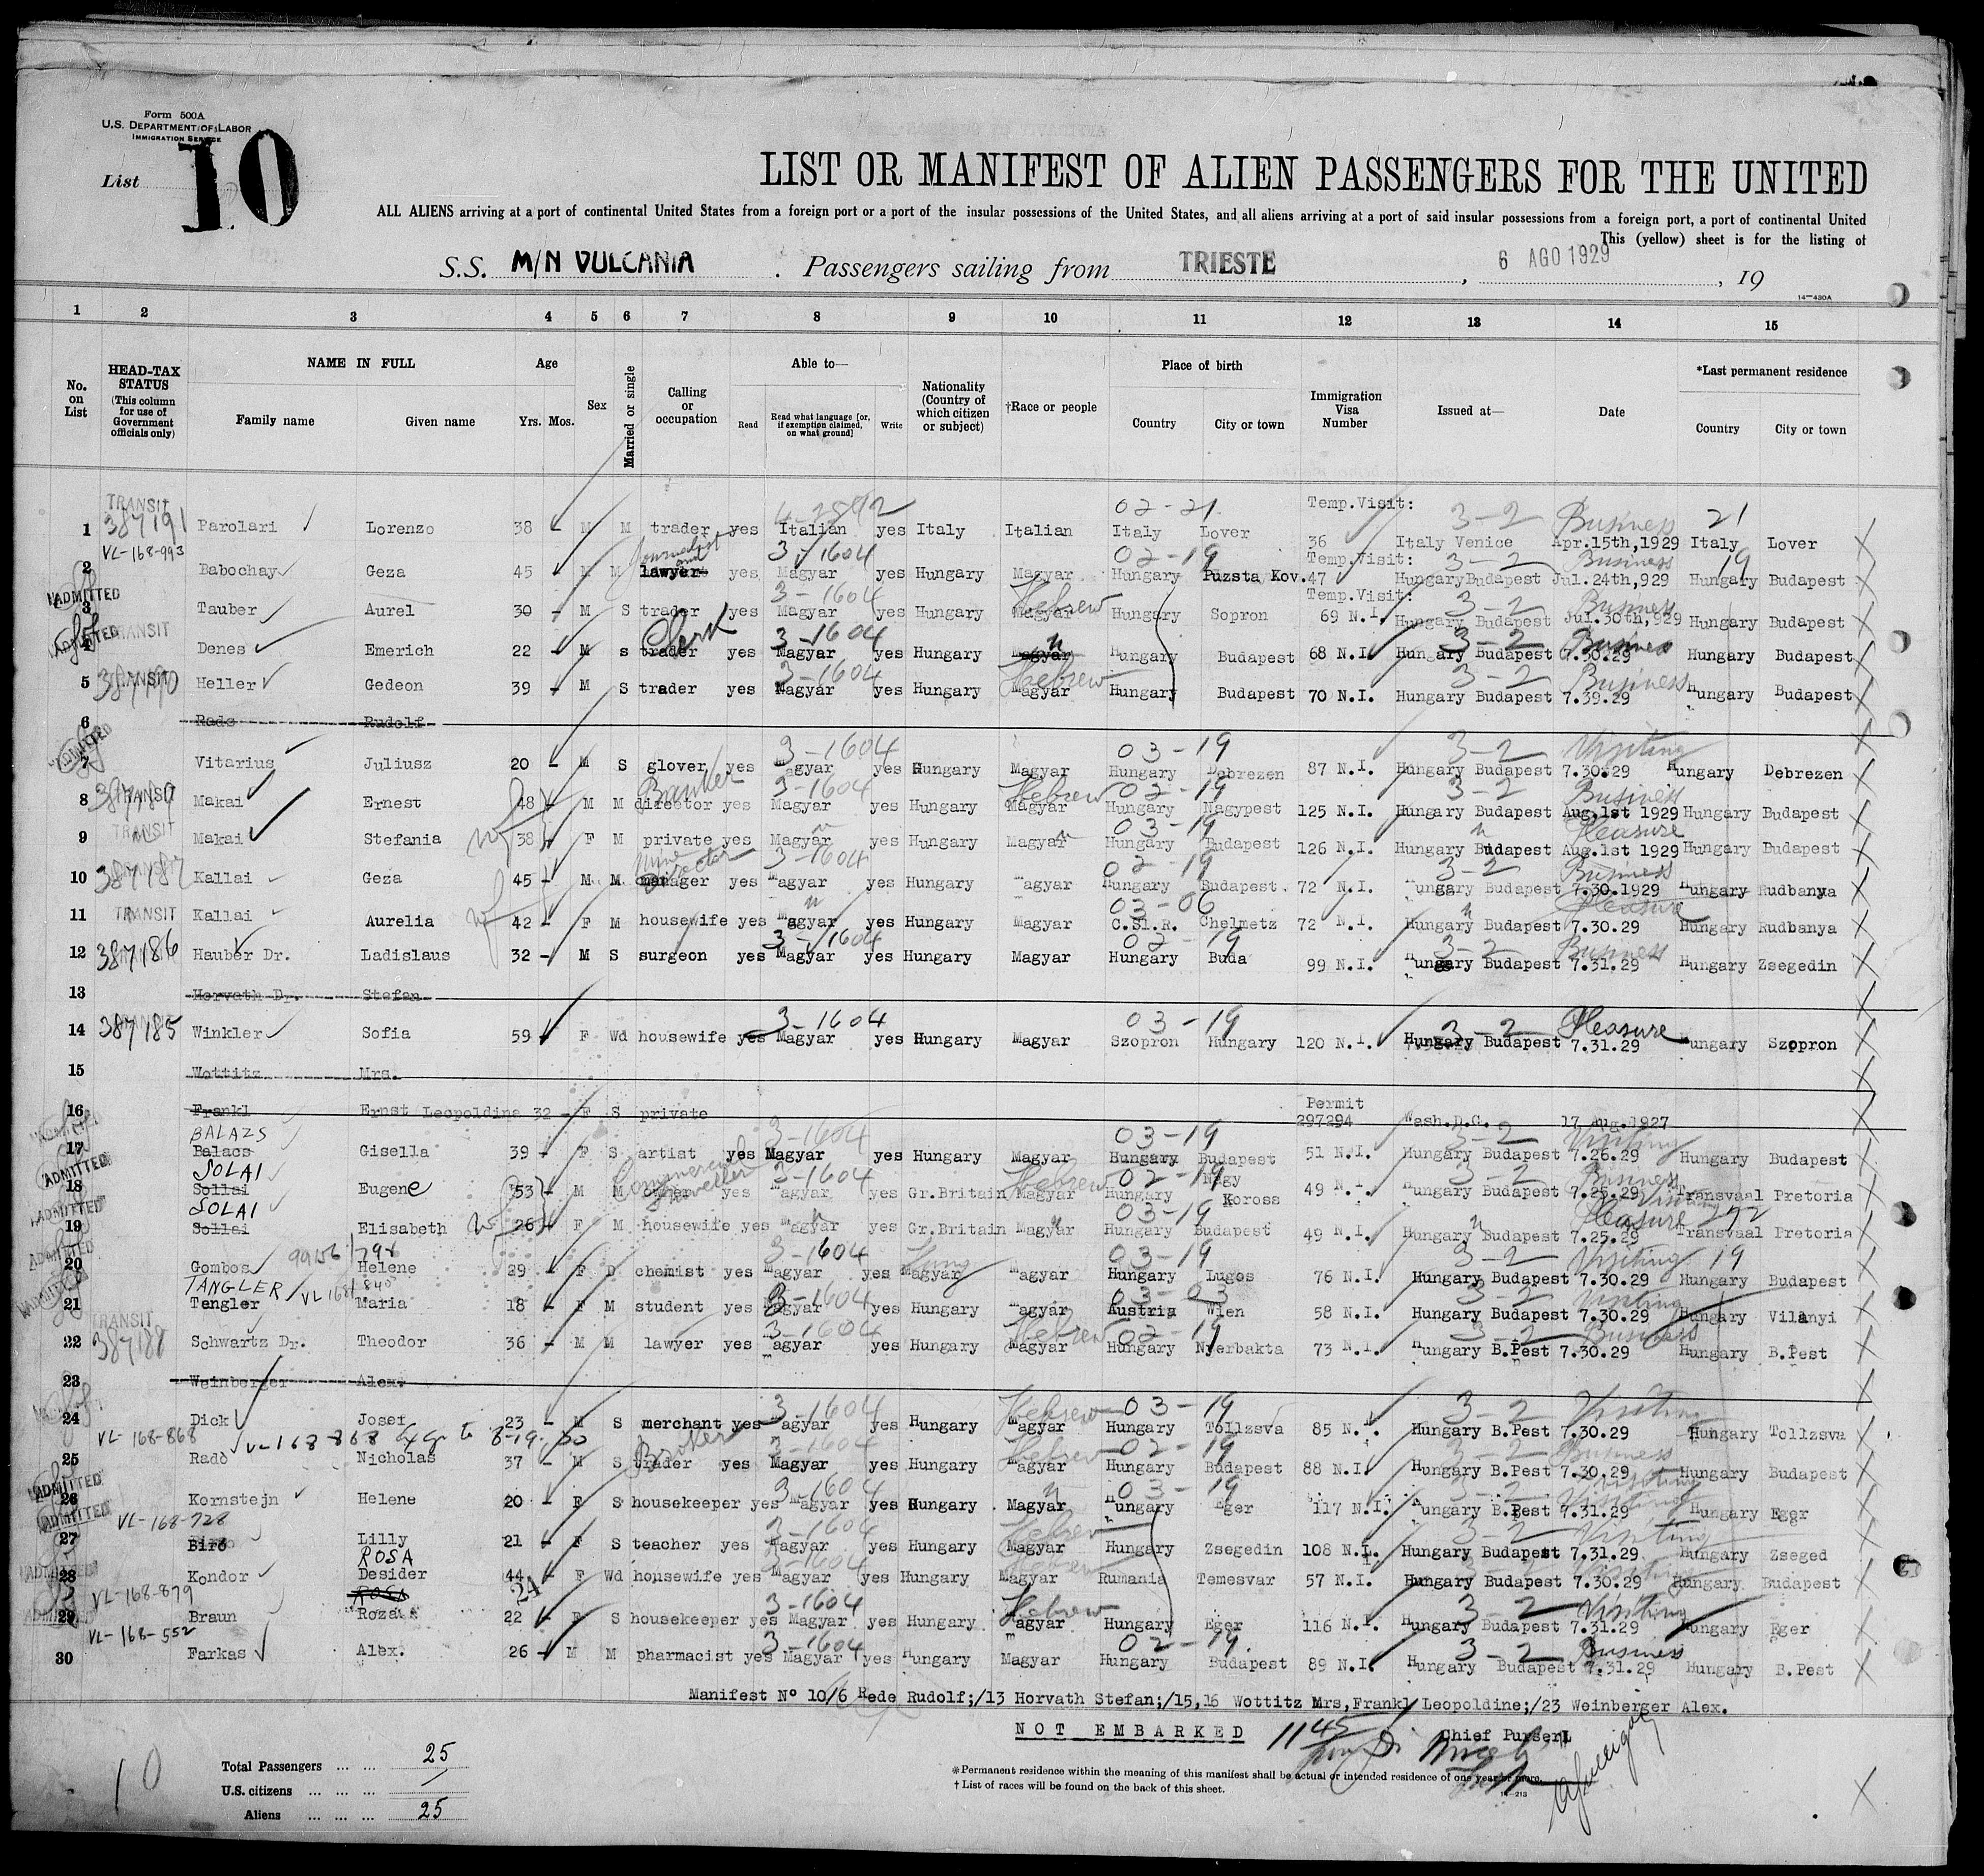 Form 500A
U.S. DEPARTMENT OF LABOR
IMMIGRATION SERVICE
List 10
LIST OR MANIFEST OF ALIEN PASSENGERS FOR THE UNITED
ALL ALIENS arriving at a port of continental United States from a foreign port or a port of the insular possessions of the United States, and all aliens arriving at a port of said insular possessions from a foreign port, a port of continental United
This (yellow) sheet is for the listing of
S.S. M/N VULCANIA . Passengers sailing from TRIESTE , 6 AGO 1929 , 19
14—430A
1 2 3 4 5 6 7 8 9 10 11 12 13 14 15
No. on List
HEAD-TAX STATUS (This column for use of Government officials only)
NAME IN FULL
Family name Given name
Age Yrs. Mos.
Sex
Married or single
Calling or occupation
Able to—
Read Read what language [or, if exemption claimed, on what ground] Write
Nationality (Country of which citizen or subject)
†Race or people
Place of birth
Country City or town
Immigration Visa Number
Issued at—
Date
*Last permanent residence
Country City or town
TRANSIT 02-21 Temp.Visit: 3-2 Business 21
1 387191 Parolari Lorenzo 38 M M trader yes Italian yes Italy Italian Italy Lover 36 Italy Venice Apr.15th,1929 Italy Lover
VL-168-993 3-1604 02-19 Temp.Visit: 3-2 Business 19
2 Babochay Geza 45 M M lawyer yes Magyar yes Hungary Magyar Hungary Puzsta Kov. 47 Hungary Budapest Jul.24th,929 Hungary Budapest
ADMITTED 3-1604 Hebrew Temp.Visit: 3-2 Business
3 Tauber Aurel 30 M S trader yes Magyar yes Hungary Magyar Hungary Sopron 69 N.I. Hungary Budapest Jul.30th,929 Hungary Budapest
ADMITTED TRANSIT Clerk 3-1604 3-2 Business
4 Denes Emerich 22 M S trader yes Magyar yes Hungary Magyar Hungary Budapest 68 N.I. Hungary Budapest 7.30.29 Hungary Budapest
TRANSIT 3-1604 Hebrew 3-2 Business
5 387190 Heller Gedeon 39 M S trader yes Magyar yes Hungary Magyar Hungary Budapest 70 N.I. Hungary Budapest 7.39.29 Hungary Budapest
6 Rado Rudolf
ADMITTED 3-1604 03-19 3-2 Visiting
7 Vitarius Juliusz 20 M S glover yes Magyar yes Hungary Magyar Hungary Debrezen 87 N.I. Hungary Budapest 7.30.29 Hungary Debrezen
Banker 3-1604 Hebrew 02-19 3-2 Business
8 Makai Ernest 48 M M director yes Magyar yes Hungary Magyar Hungary Nagypest 125 N.I. Hungary Budapest Aug.1st 1929 Hungary Budapest
TRANSIT 03-19 Pleasure
9 Makai Stefania wf 38 F M private yes Magyar yes Hungary Magyar Hungary Budapest 126 N.I. Hungary Budapest Aug.1st 1929 Hungary Budapest
TRANSIT Mine Director 3-1604 02-19 3-2 Business
10 387187 Kallai Geza 45 M M manager yes Magyar yes Hungary Magyar Hungary Budapest 72 N.I. Hungary Budapest 7.30.1929 Hungary Rudbanya
TRANSIT 03-06 Pleasure
11 Kallai Aurelia wf 42 F M housewife yes Magyar yes Hungary Magyar C.Sl.R. Chelmetz 72 N.I. Hungary Budapest 7.30.29 Hungary Rudbanya
3-1604 02-19 3-2 Business
12 387186 Hauber Dr. Ladislaus 32 M S surgeon yes Magyar yes Hungary Magyar Hungary Buda 99 N.I. Hungary Budapest 7.31.29 Hungary Zsegedin
13 Horvath Dr. Stefan
TRANSIT 3-1604 03-19 3-2 Pleasure
14 387185 Winkler Sofia 59 F Wd housewife yes Magyar yes Hungary Magyar Szopron Hungary 120 N.I. Hungary Budapest 7.31.29 Hungary Szopron
15 Wottitz Mrs.
Permit
16 Frankl Ernst Leopoldina 32 F S private 297294 Wash.D.C. 17 Aug.1927
BALAZS 3-1604 03-19 3-2 Visiting
17 Balacs Gisella 39 F S artiat yes Magyar yes Hungary Magyar Hungary Budapest 51 N.I. Hungary Budapest 7.26.29 Hungary Budapest
ADMITTED SOLAI Commercial Traveller 3-1604 Hebrew 02-19 3-2 Business
18 Sollai Eugene 53 M M yes Magyar yes Gr.Britain Magyar Hungary Nagy Koross 49 N.I. Hungary Budapest 7.25.29 Transvaal Pretoria
ADMITTED SOLAI 03-19 Visiting Pleasure
19 Sollai Elisabeth wf 26 F M housewife yes Magyar yes Gr.Britain Magyar Hungary Budapest 49 N.I. Hungary Budapest 7.25.29 Transvaal Pretoria
ADMITTED 3-1604 03-19 3-2 Visiting 19
20 Gombos Helene 29 F D chemist yes Magyar yes Magyar Magyar Hungary Lugos 76 N.I. Hungary Budapest 7.30.29 Hungary Budapest
TANGLER 3-1604 03-03 3-2 Visiting
21 Tengler Maria 18 F M student yes Magyar yes Hungary Magyar Austria Wien 58 N.I. Hungary Budapest 7.30.29 Hungary Vilanyi
TRANSIT 3-1604 Hebrew 02-19 3-2 Business
22 387188 Schwartz Dr. Theodor 36 M M lawyer yes Magyar yes Hungary Magyar Hungary Nyerbakta 73 N.I. Hungary B.Pest 7.30.29 Hungary B.Pest
23 Weinberger Alex.
3-1604 Hebrew 03-19 3-2 Visiting
24 Dick Josef 23 M S merchant yes Magyar yes Hungary Magyar Hungary Tollzsva 85 N.I. Hungary B.Pest 7.30.29 Hungary Tollzsva
VL-168-868 VL-168-868 Broker 3-1604 Hebrew 02-19 3-2 Business
25 Rado Nicholas 37 M S trader yes Magyar yes Hungary Magyar Hungary Budapest 88 N.I. Hungary B.Pest 7.30.29 Hungary Budapest
ADMITTED 3-1604 03-19 3-2 Visiting
26 Kornstejn Helene 20 F S housekeeper yes Magyar yes Hungary Magyar Hungary Eger 117 N.I. Hungary B.Pest 7.31.29 Hungary Eger
ADMITTED VL-168-728 3-1604 Hebrew 3-2 Visiting
27 Biro Lilly 21 F S teacher yes Magyar yes Hungary Magyar Hungary Zsegedin 108 N.I. Hungary Budapest 7.31.29 Hungary Zseged
ROSA 3-1604 Hebrew 3-2 Visiting
28 Kondor Desider 44 F Wd housewife yes Magyar yes Hungary Magyar Rumania Temesvar 57 N.I. Hungary Budapest 7.30.29 Hungary Budapest
VL-168-879 ROSA 24 3-1604 Hebrew 3-2 Visiting
29 Braun Roza 22 F S housekeeper yes Magyar yes Hungary Magyar Hungary Eger 116 N.I. Hungary Budapest 7.31.29 Hungary Eger
VL-168-552 3-1604 02-19. 3-2 Business
30 Farkas Alex. 26 M M pharmacist yes Magyar yes Hungary Magyar Hungary Budapest 89 N.I. Hungary Budapest 7.31.29 Hungary B.Pest
Manifest N° 10/6 Rede Rudolf;/13 Horvath Stefan;/15,16 Wottitz Mrs,Frankl Leopoldine;/23 Weinberger Alex.
NOT EMBARKED 1145 Chief Purser
10
Total Passengers ... ... 25
U.S. citizens ... ... ... /
Aliens ... ... ... 25
※Permanent residence within the meaning of this manifest shall be actual or intended residence of one year or more.
† List of races will be found on the back of this sheet.
14—213